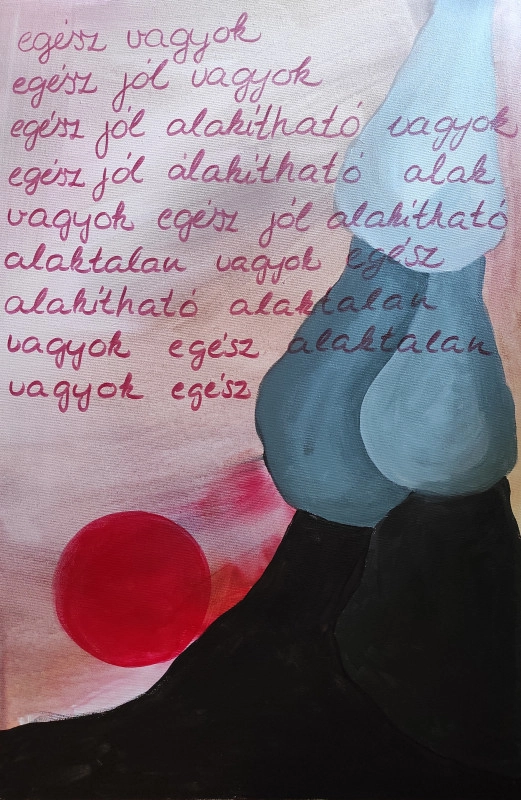 egész vagyok
egész jól vagyok
egész jól alakítható vagyok
egész jól alakítható alak
vagyok egész jól alakítható
alaktalan vagyok egész
alakítható alaktalan
vagyok egész alaktalan
vagyok egész